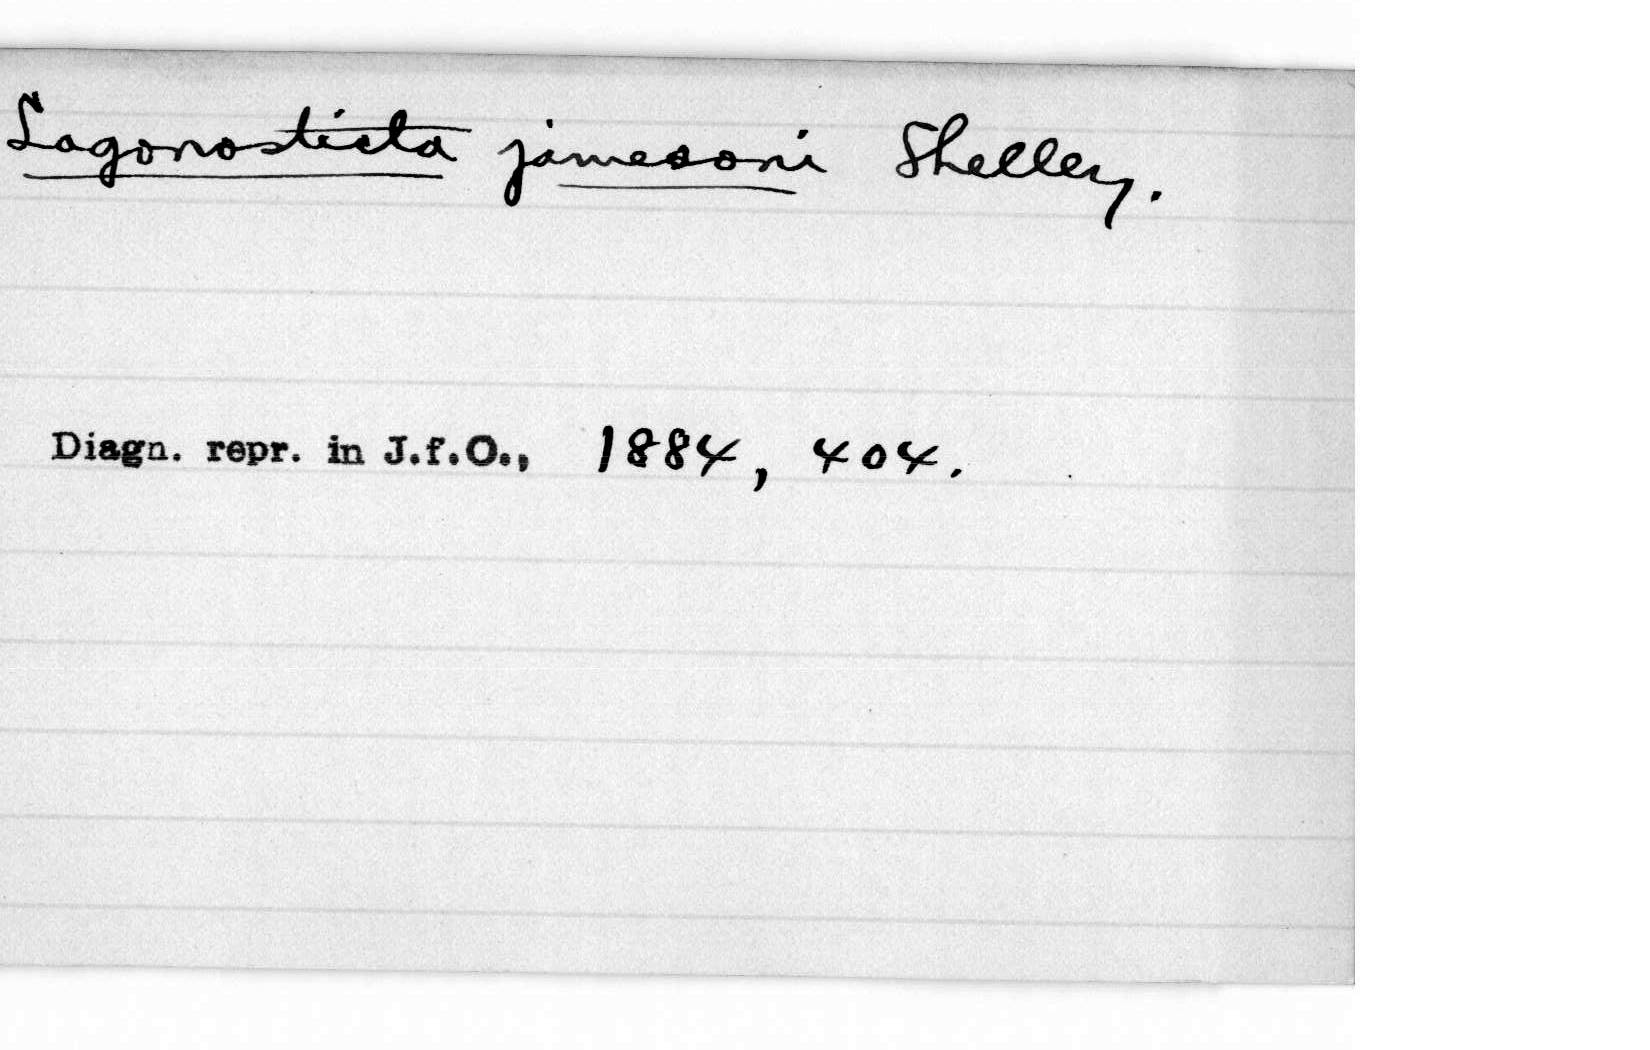 Lagonosticta jamesoni Shelley.
Diagn. repr. in J.f.O., 1884, 404.